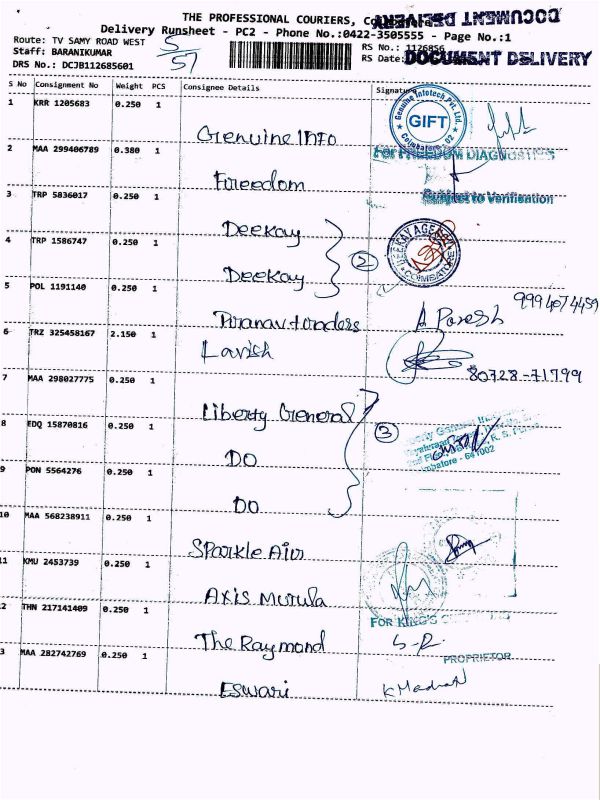 THE PROFESSIONAL COURIERS,
DOCUMENT DELIVERY
Delivery Runsheet - PC2 - Phone No.:0422-3505555 - Page No.:1
Route: TV SAMY ROAD WEST
5/57
RS No.: 1126856
Staff: BARANIKUMAR
RS Date:
DOCUMENT DELIVERY
DRS No.: DCJB112685601
S No Consignment No Weight PCS Consignee Details Signature
1 KRR 1205683 0.250 1 Genuine Info
Genuine Infotech Pvt. Ltd.
GIFT
Coimbatore
2 MAA 299406789 0.380 1 Freedom
For FREEDOM DIAGNOSTICS
Subject to Verification
3 TRP 5836017 0.250 1 Deekay
4 TRP 1586747 0.250 1 Deekay
2
DEEKAY AGENCIES
COIMBATORE
5 POL 1191140 0.250 1 Pranav traders
A Paresh
9994074459
6 TRZ 325458167 2.150 1 Lavish
80728-71799
7 MAA 298027775 0.250 1 Liberty General
8 EDQ 15870816 0.250 1 DO
3
R. S. Puram
Coimbatore - 641002
9 PON 5564276 0.250 1 DO
10 MAA 568238911 0.250 1 Sparkle Air
11 KMU 2453739 0.250 1 Axis Mutula
FOR KING'S
12 THN 217141409 0.250 1 The Raymond
S-R
PROPRIETOR
13 MAA 282742769 0.250 1 Eswari